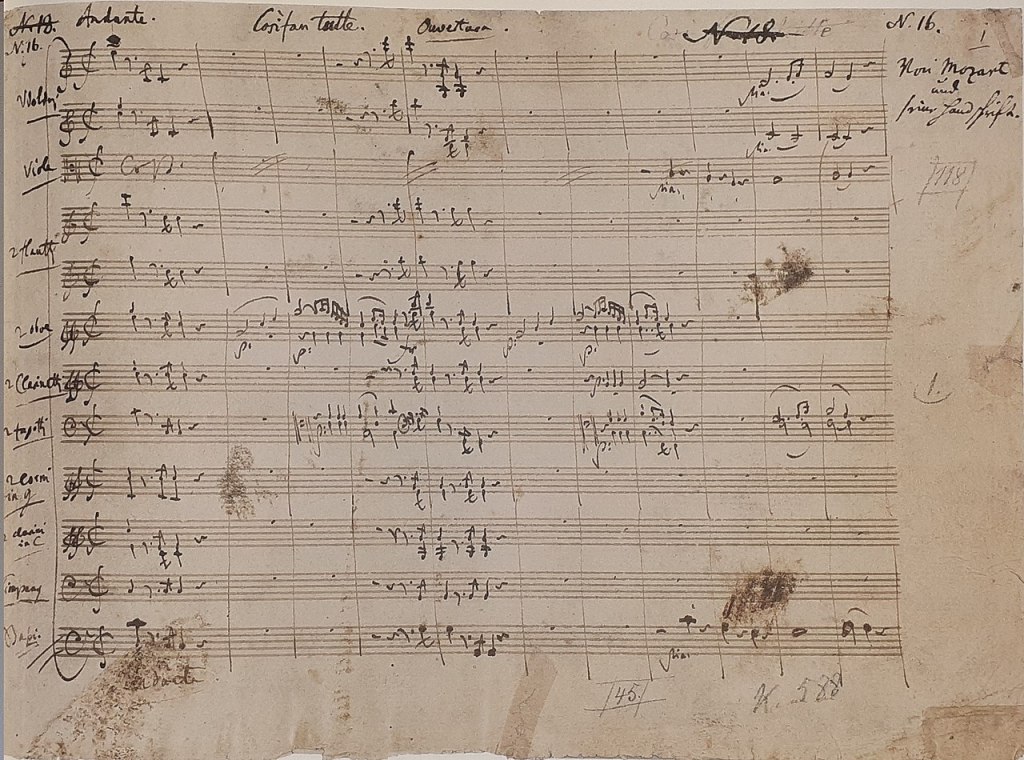 N. 18. Andante. Cosi fan tutte. Ouvertura. N. 18. N. 16. 1
N. 16.
Von Mozart
und
seine Handschrift.
Violini
Viole Col B.
mia.
mia.
mia.
[118]
2 flauti
2 oboe
p: p: p: p:
2 Clarinetti
p:
1.
2 fagotti
p: p:
2 Corni
in g
2 clarini
in C
Timpany
Bassi.
mia.
Andante
[45.] K. 588